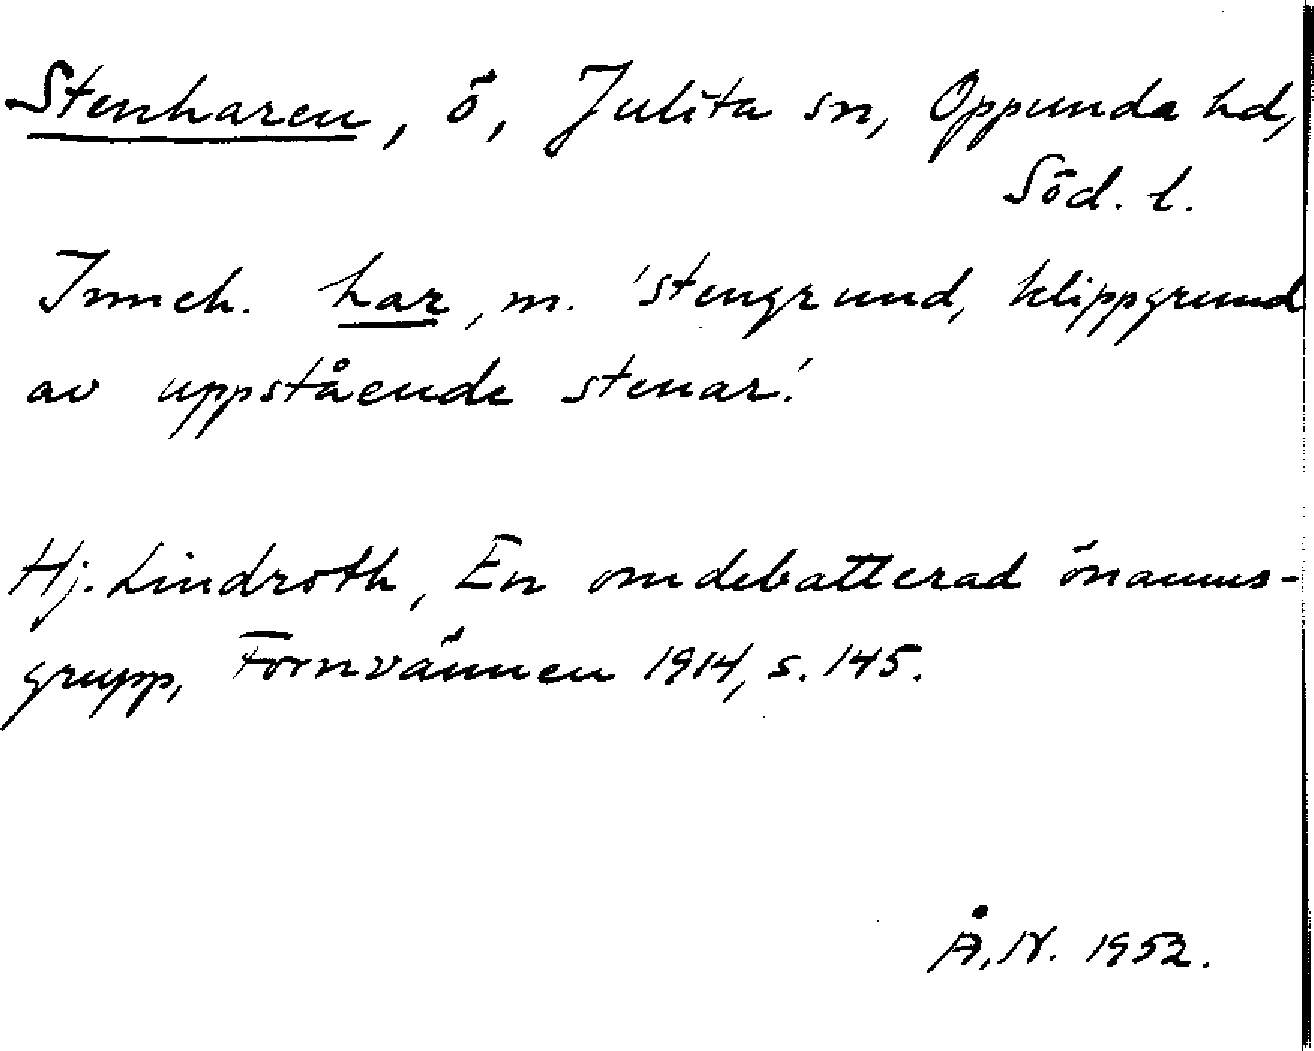 Stenharen, ö, Julita sn, Oppunda hd,
Söd. l.
Inneh. har, m. 'stengrund, klippgrund
av uppstående stenar'.
Hj. Lindroth, En omdebatterad önamns-
grupp, Fornvännen 1914, s. 145.
Å. N. 1952.